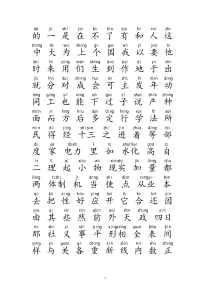 de yī shì zài bù le yǒu hé rén zhè
的一是在不了有和人这
zhōng dà wéi shàng gè guó wǒ yǐ yào tā
中大为上个国我以要他
shí lái yòng men shēng dào zuò dì yú chū
时来用们生到作地于出
jiù fēn duì chéng huì kě zhǔ fā nián dòng
就分对成会可主发年动
tóng gōng yě néng xià guò zi shuō chǎn zhǒng
同工也能下过子说产种
miàn ér fāng hòu duō dìng xíng xué fǎ suǒ
面而方后多定行学法所
mín dé jīng shí sān zhī jìn zhe děng bù
民得经十三之进着等部
dù jiā diàn lì lǐ rú shuǐ huà gāo zì
度家电力里如水化高自
èr lǐ qǐ xiǎo wù xiàn shí jiā liàng dōu
二理起小物现实加量都
liǎng tǐ zhì jī dāng shǐ diǎn cóng yè běn
两体制机当使点从业本
qù bǎ xìng hǎo yīng kāi tā hé hái yīn
去把性好应开它合还因
yóu qí xiē rán qián wài tiān zhèng sì rì
由其些然前外天政四日
nà shè yì shì píng xíng xiāng quán biǎo jiān
那社义事平形相全表间
yàng yǔ guān gè chóng xīn xiàn nèi shù zhèng
样与关各重新线内数正